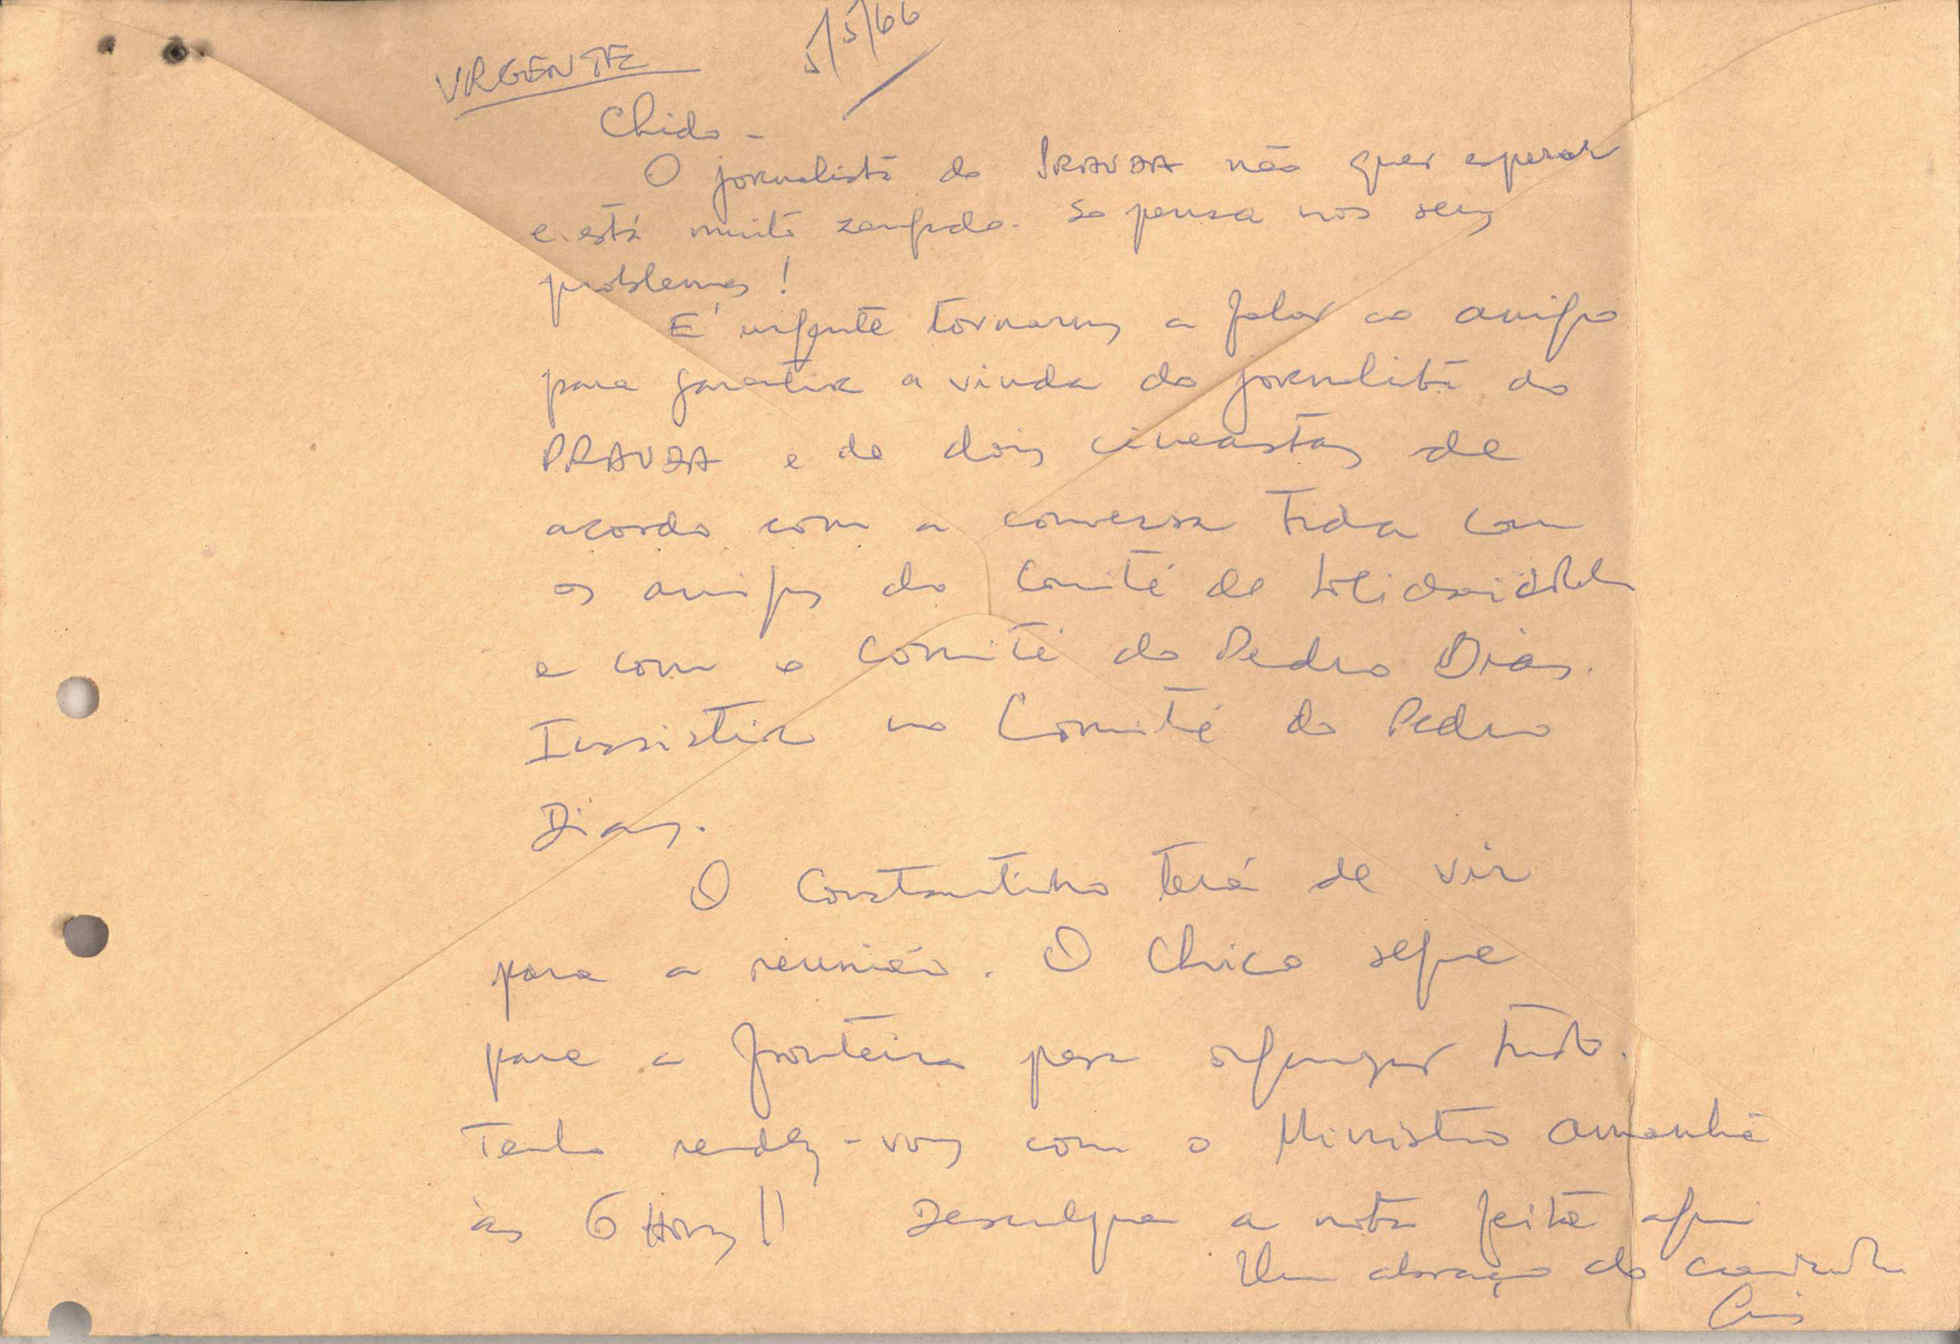 URGENTE 5/5/66
Chido -
O jornalista do PRAVDA não quer esperar
e está muito zangado. Só pensa nos seus
problemas!
É urgente tornarmos a falar ao amigo
para garantir a vinda do jornalista do
PRAVDA e de dois cineastas de
acordo com a conversa tida com
os amigos do Comité de Solidariedade
e com o Comité do Pedro Dias.
Inssistir no Comité do Pedro
Dias.
O Constantino terá de vir
para a reunião. O Chico segue
para a fronteira para organizar tudo.
Tenho rendez-vous com o Ministro amanhã
às 6 Horas!! Desculpe a nota feita aqui
Um abraço do camarada